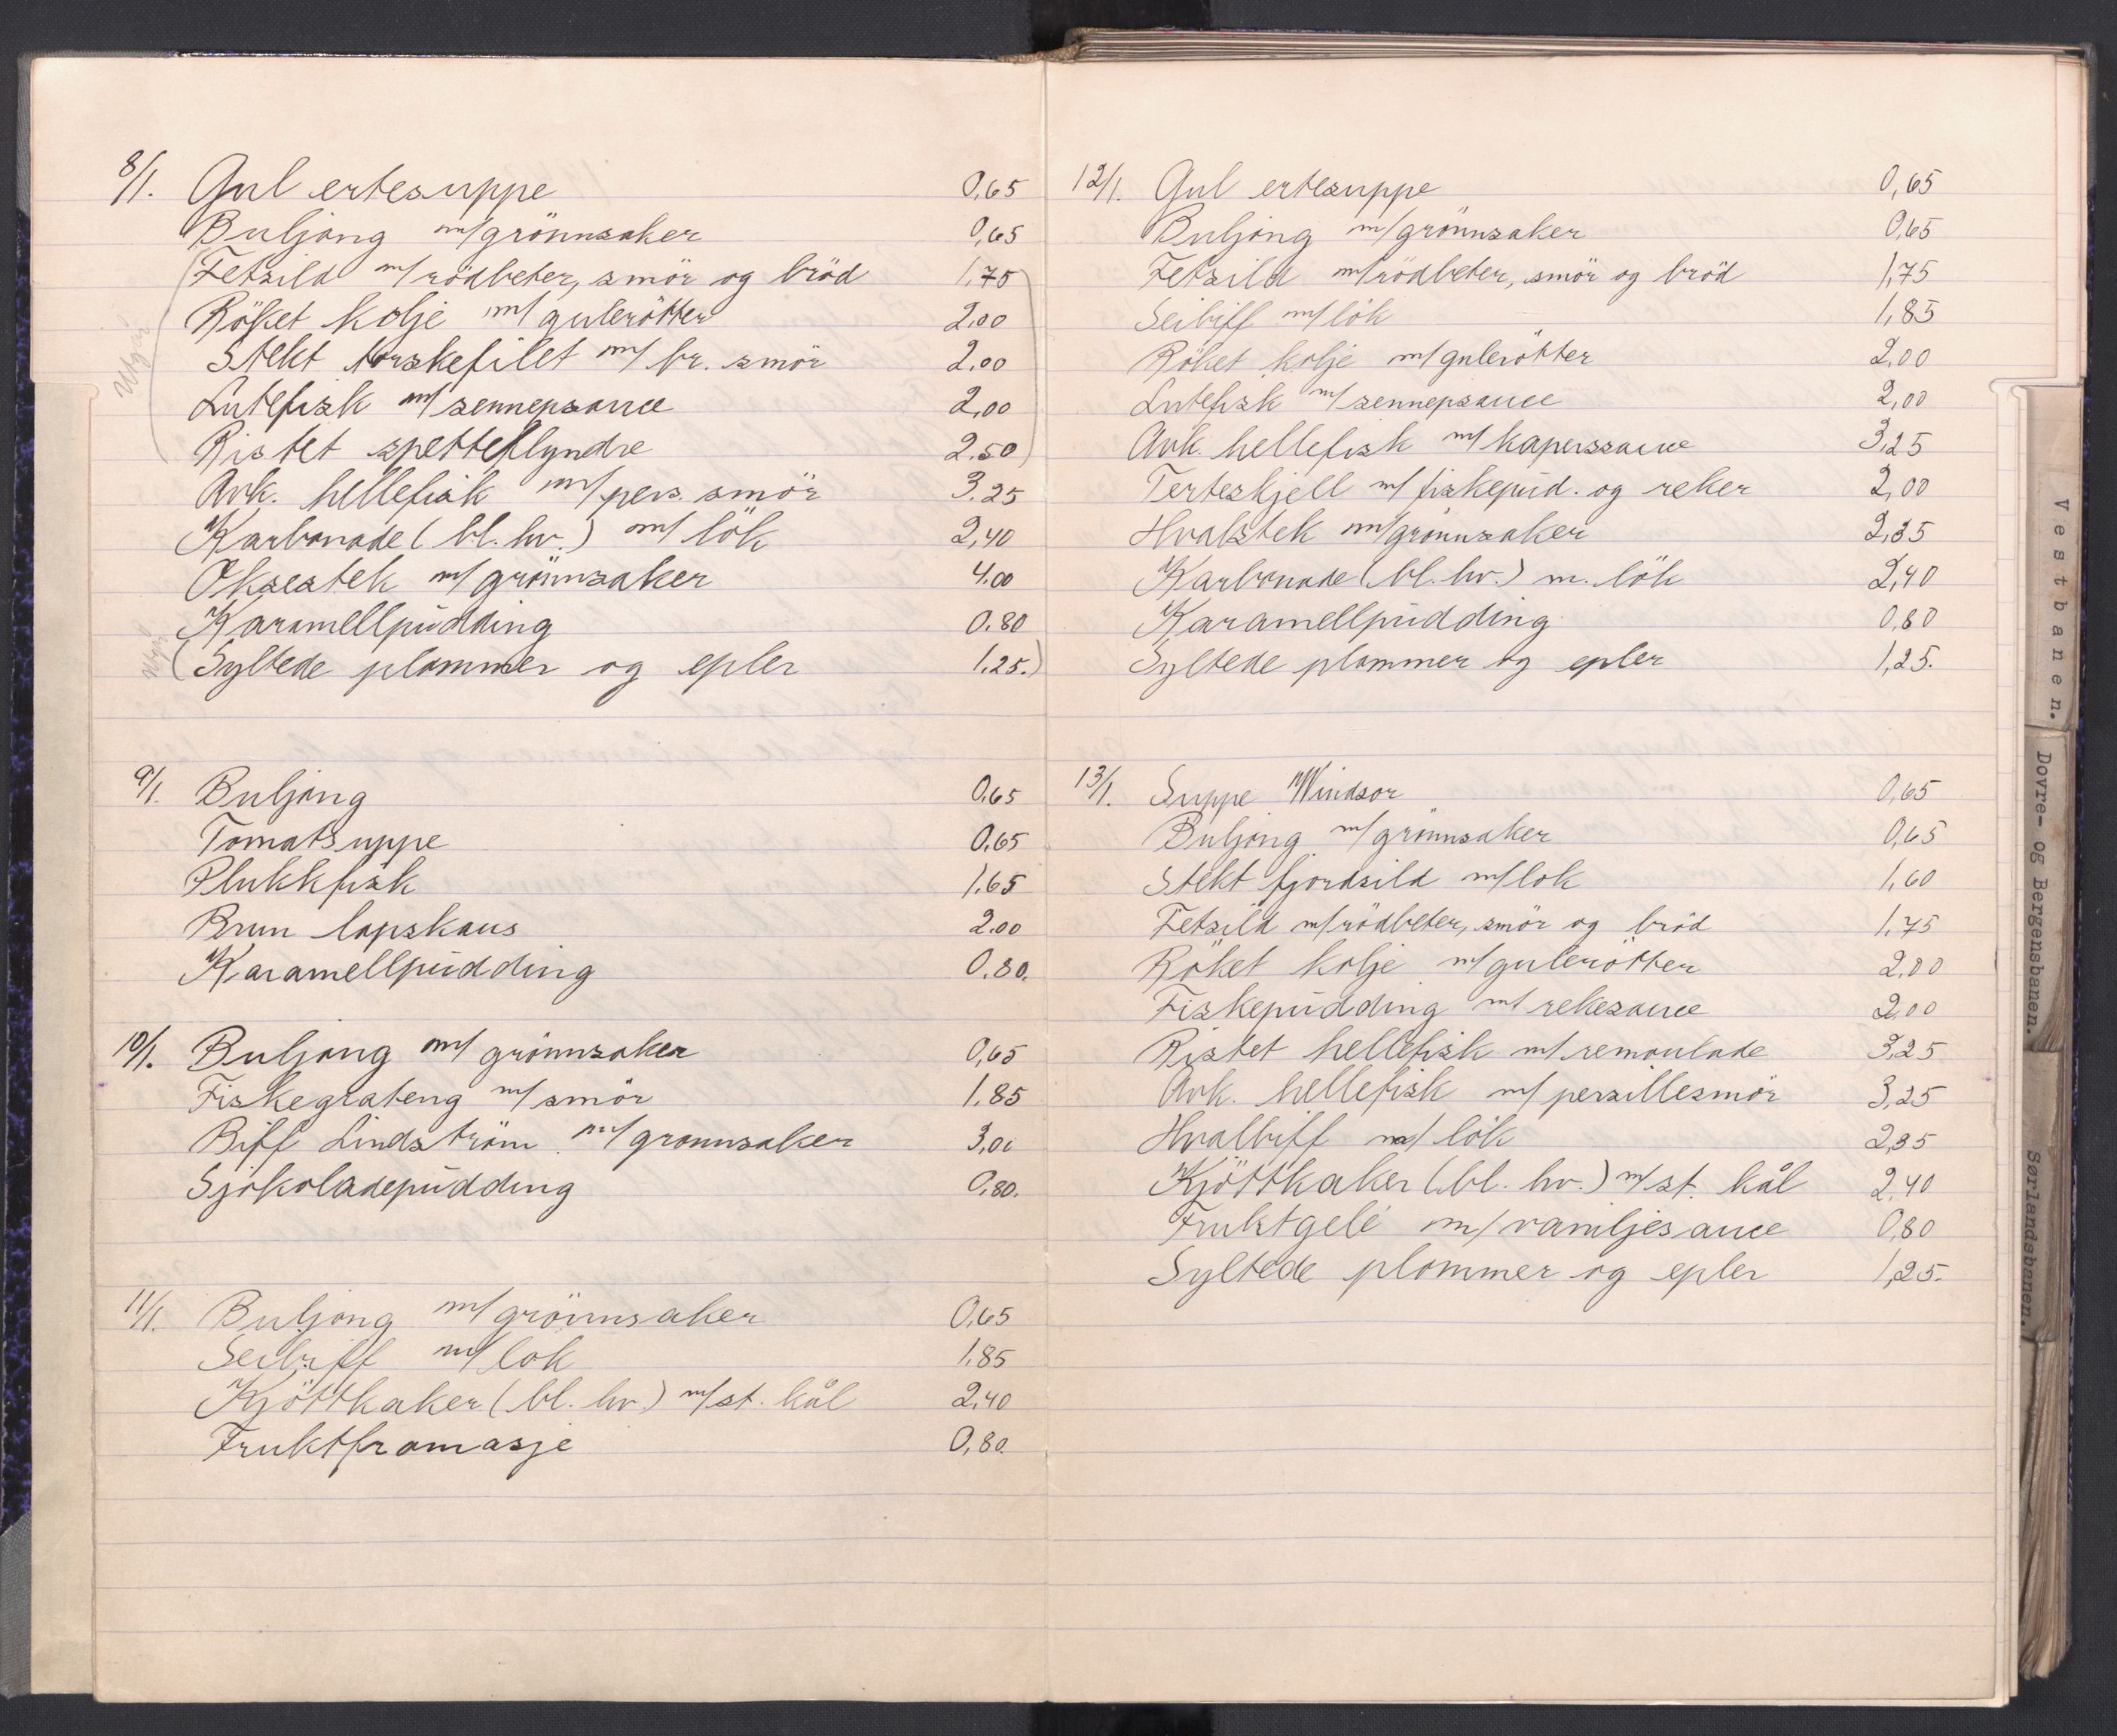 8/1. Gul ertesuppe 0,65
Buljong m/grönnsaker 0,65
(Fetsild m/rödbeter, smör og bröd 1,75
Röket kolje m/gulerötter 2,00
Stekt torskefilet m/ br. smör 2,00
Lutefisk m/sennepsauce 2,00
Ristet spetteflyndre 2.50)
Utgår
Avk. hellefisk m/pers. smör 3.25
Karbonade (bl. hv.) m/ lök 2,40
Oksestek m/grönnsaker 4.00
Karamellpudding 0.80
Utgår (Syltede plommer og epler 1.25.)
9/1. Buljong 0,65
Tomatsuppe 0.65
Plukkfisk 1.65
Brun lapskaus 2.00
Karamellpudding 0.80.
10/1. Buljong m/grönnsaker 0,65
Fiskegrateng m/smör 1.85
Biff Lindström m/gronnsaker 3,00
Sjokoladepudding 0,80.
11/1. Buljong m/grönnsaker 0,65
Seibiff m/lok 1.85
Kjöttkaker (bl. hv.) m/st. kål 2,40
Fruktfromasje 0,80.
12/1. Gul ertesuppe 0,65
Buljong m/grönnsaker 0,65
Fetsild m/rödbeter, smör og bröd 1,75
Seibiff m/lök 1,85
Röket kolje m/gulerötter 2,00
Lutefisk m/sennepsauce 2,00
Avk. hellefisk m/kaperssauce 3,25
Terteskjell m/ fiskepud. og reker 2,00
Hvalstek m/grönnsaker 2,35
Karbonade (bl. hv.) m. lök 2,40
Karamellpudding 0,80
Syltede plommer og epler 1,25.
13/1. Suppe Windsor 0,65
Buljong m/grönnsaker 0,65
Stekt fjordsild m/lok 1,60
Fetsild m/rödbeter, smör og bröd 1,75
Röket kolje m/gulerötter 2,00
Fiskepudding m/ rekesauce 2,00
Ristet hellefisk m/remoulade 3,25
Avk. hellefisk m/persillesmör 3,25
Hvalbiff m/lök 2,35
Kjöttkaker (bl. hv.) m/st. kål 2,40
Fruktgelé m/vaniljesauce 0,80
Syltede plommer og epler 1,25.
Vestbanen.
Dovre- og Bergensbanen.
Sørlandsbanen.